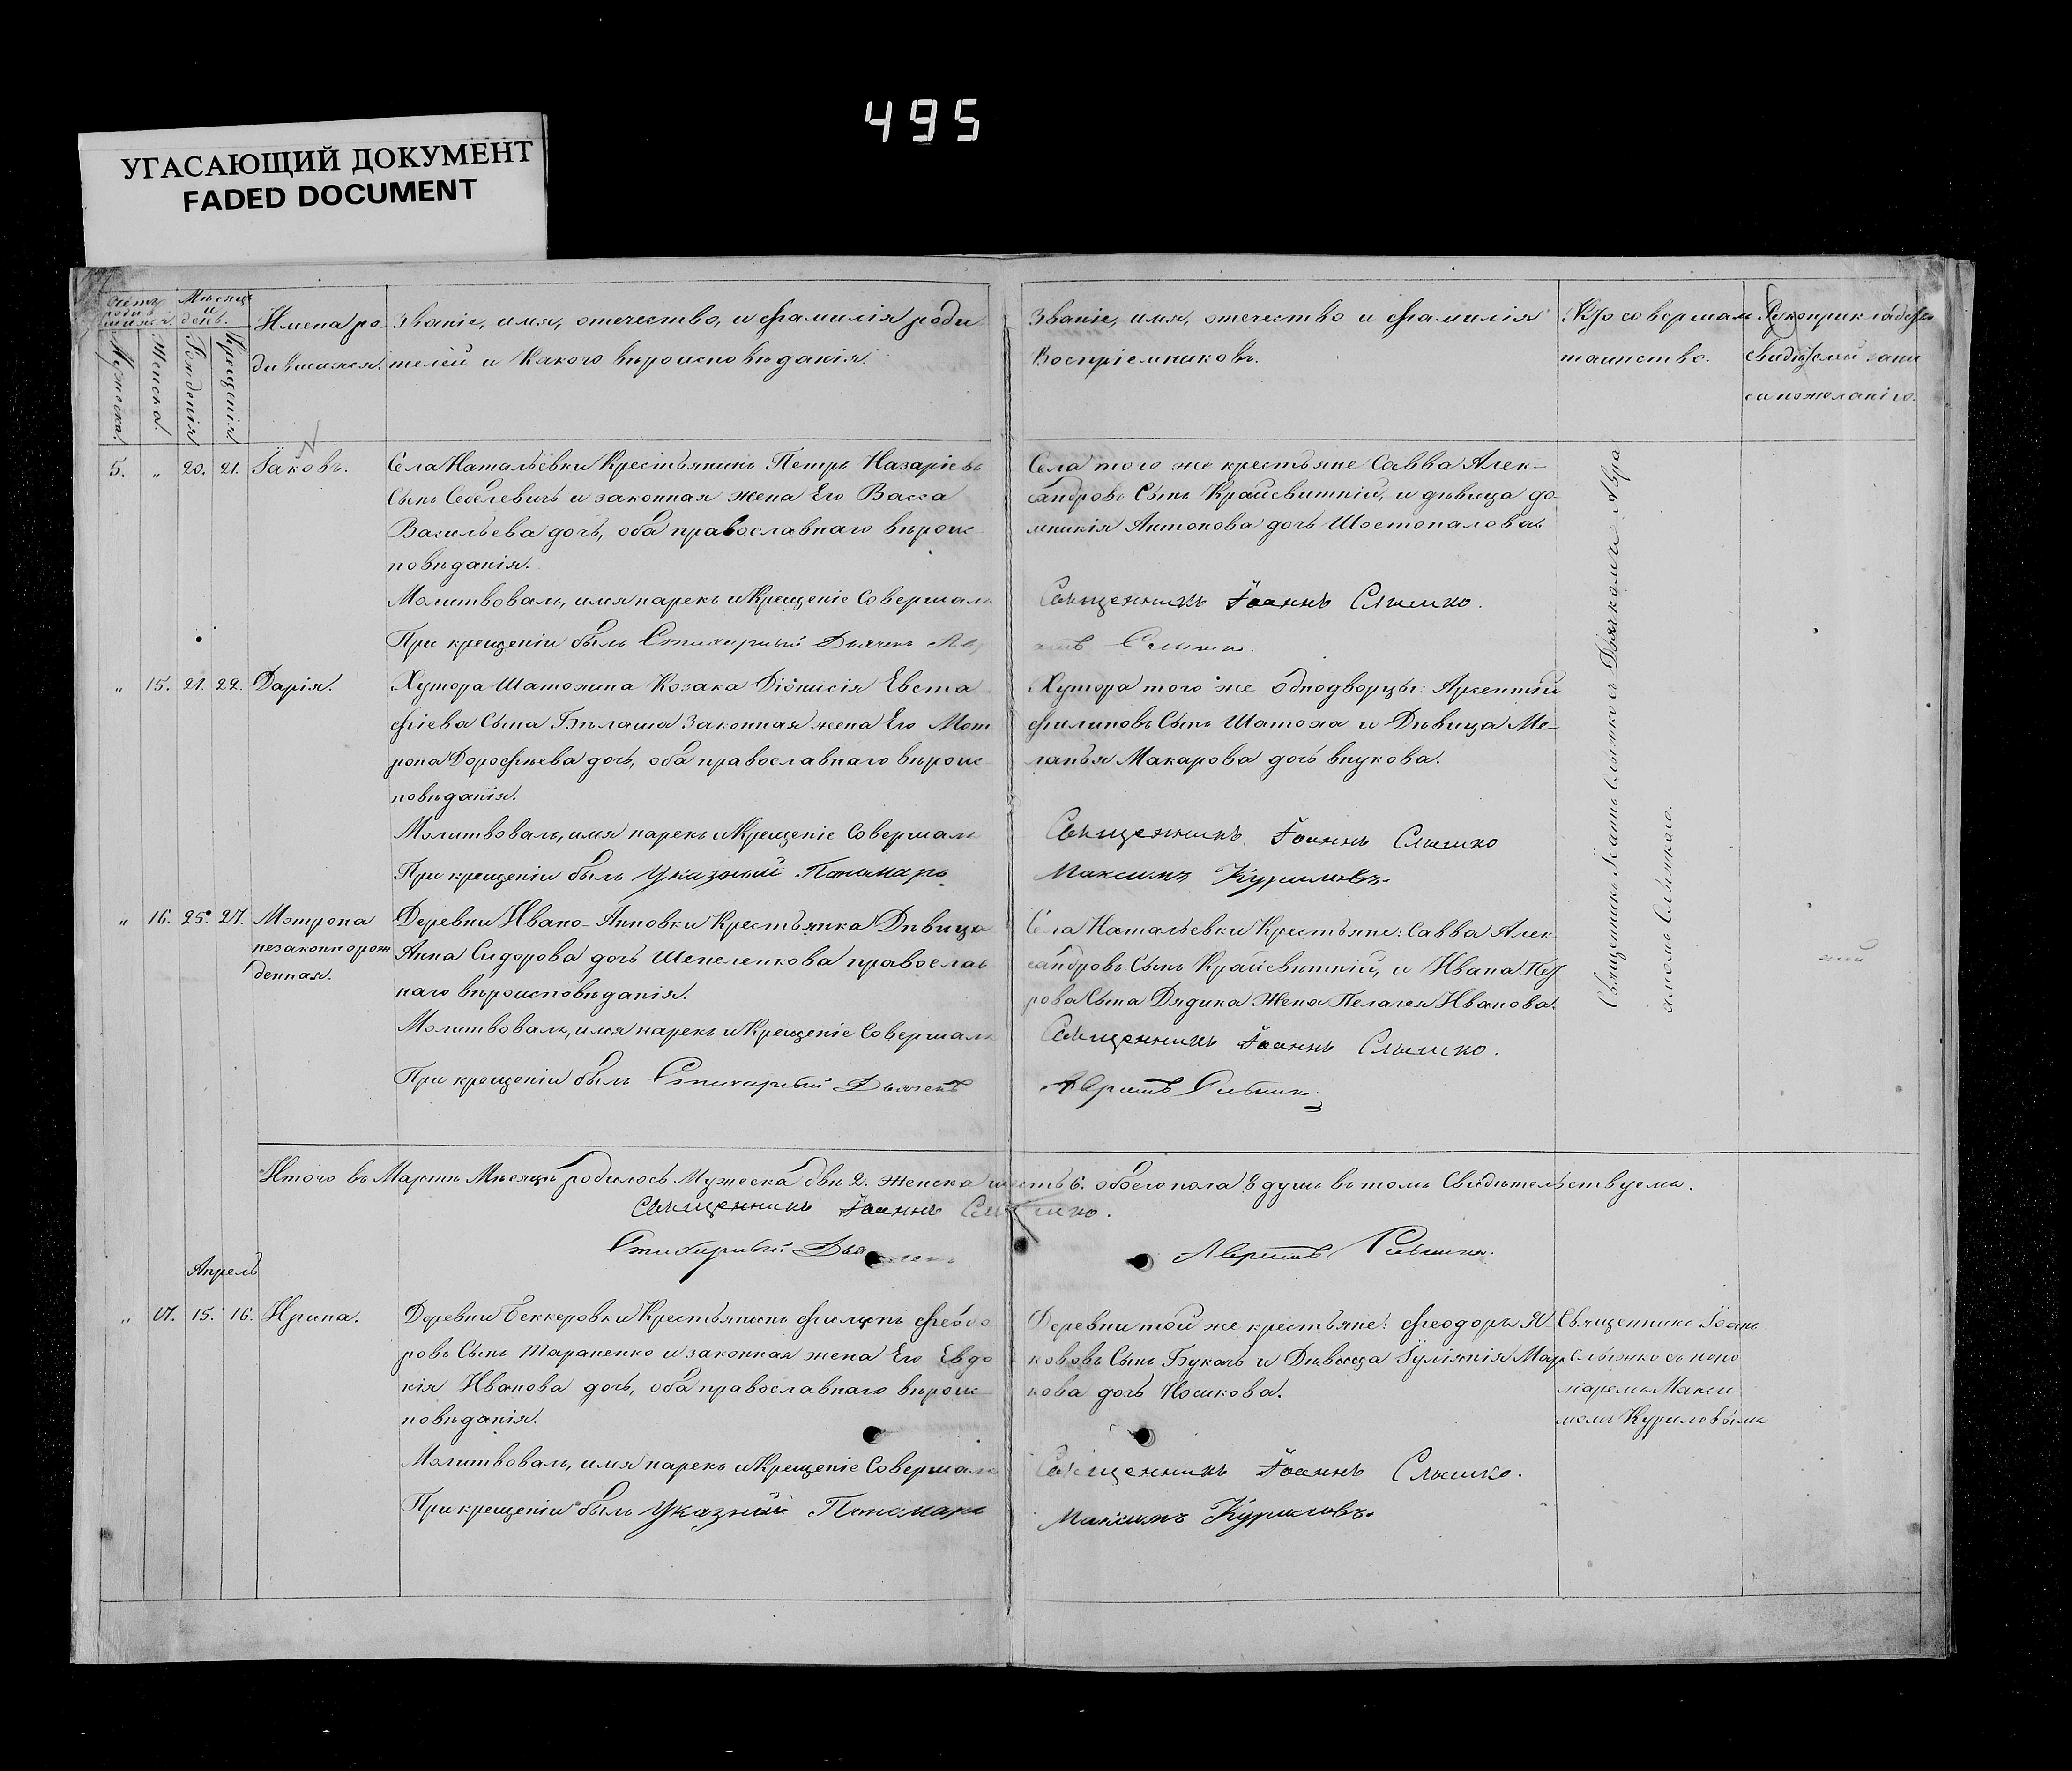 495
УГАСАЮЩИЙ ДОКУМЕНТ
FADED DOCUMENT
Счетъ родившихся.
Мужеска.
Женска.
Мѣсяцъ и день.
Рожденія
Крещенія
Имена ро-
дившихся.
Званіе, имя, отечество, и фамилія роди
телей и какого вѣроисповѣданія.
Званіе, имя, отечество и фамилія
Воспріемниковъ.
Кто совершал
таинство.
Рукоприкладство
свидѣтелей запи
си по желанію.
5. „ 20. 21. Іаковъ.
Села Натальевки Крестьянинъ Петръ Назаріевъ
Сынъ и законная жена Его Васса
Васильева дочь, оба православнаго вѣроис
повѣданія.
Молитвовалъ, имя нарекъ и Крещеніе Совершалъ
При крещеніи былъ Стихарный Дьячекъ
Села того же крестьяне Савва Алек-
сандровъ Сынъ Крайсвитній, и дѣвица до-
мникія Антонова дочь Шостопалова
Священникъ Іоаннъ Слышко.
„ 15. 21. 22. Дарія.
Хутора Шатохина Козака Діонисія Евста
фіева Сына Бѣлаша Законная жена Его Мот
рона Дорофѣева дочь, оба православнаго вѣроис
повѣданія.
Молитвовалъ, имя нарекъ и Крещеніе Совершалъ
При крещеніи былъ Указный Пономарь
Хутора того же Однодворцы: Арсентій
филиповъ Сынъ Шатоха и Дѣвица Ме-
ланья Макарова дочь внукова.
Священникъ Іоаннъ Слышко
Максимъ Куриловъ.
„ 16. 25. 27. Мотрона
незаконнорож
денная.
Деревни Ивано-Анновки Крестьянка Дѣвица
Анна Сидорова дочь Шепеленкова православ
наго вѣроисповѣданія.
Молитвовалъ, имя нарекъ и Крещеніе Совершалъ
При крещеніи былъ Стихарный Дьячекъ
Села Натальевки Крестьяне: Савва Алек-
сандровъ Сынъ Крайсвѣтній, и Ивана Пет
рова Сына Дядика Жена Пелагея Иванова.
Священникъ Іоаннъ Слышко.
Священникъ Іоаннъ Слышко съ Дьячкомъ Авра
Итого въ Мартѣ Мѣсяцѣ родилось Мужеска двѣ 2. Женска шесть 6. обоего пола 8 душъ въ томъ Свидѣтельствуемъ.
Священникъ Іоаннъ Слышко.
Стихарный Дьячекъ
Апрель
„ 17. 15. 16. Ирина.
Деревни Беккеровки Крестьянинъ филипъ феодо
ровъ Сынъ Тараненко и законная жена Его Евдо
кія Иванова дочь, оба православнаго вѣроис
повѣданія.
Молитвовалъ, имя нарекъ и Крещеніе Совершалъ
При крещеніи былъ Указный Пономарь
Деревни той же крестьяне: феодоръ Я
кововъ Сынъ Букачъ и Дѣвица Іуліянія Мар
кова дочь Носикова.
Священникъ Іоаннъ Слышко.
Максимъ Куриловъ.
Священникъ Іоанъ
Слышко съ поно
маремъ Макси-
момъ Куриловымъ